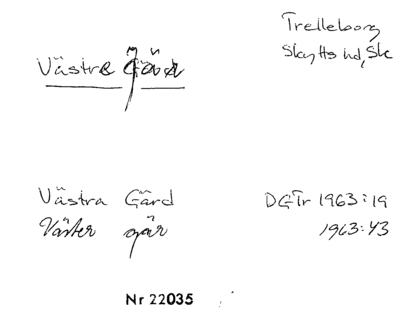 Trelleborg
Skytts hd, Sk
Västra Gård
Västra Gård DGTr 1963:19
Väster går 1963:43
Nr 22035